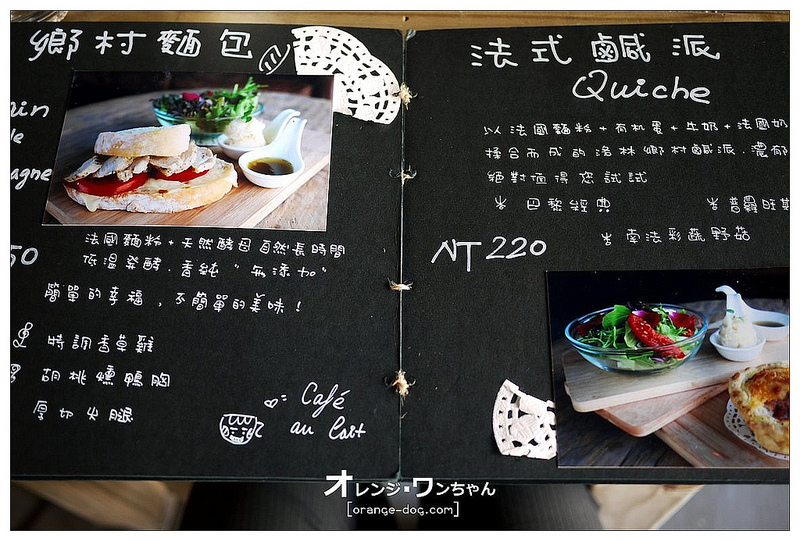 鄉村麵包
法國麵粉+天然酵母自然長時間
低溫發酵.香純"無添加"
簡單的幸福,不簡單的美味!
特調香草雞
胡桃燻鴨胸
厚切火腿
Café
au lait
法式鹹派
Quiche
以法國麵粉+有机蛋+牛奶+法國奶
揉合而成的洛林鄉村鹹派.濃郁
絕對值得您試試
巴黎經典
普羅旺斯
南法彩蔬野菇
NT 220
オレンジ・ワンちゃん
[orange-dog.com]